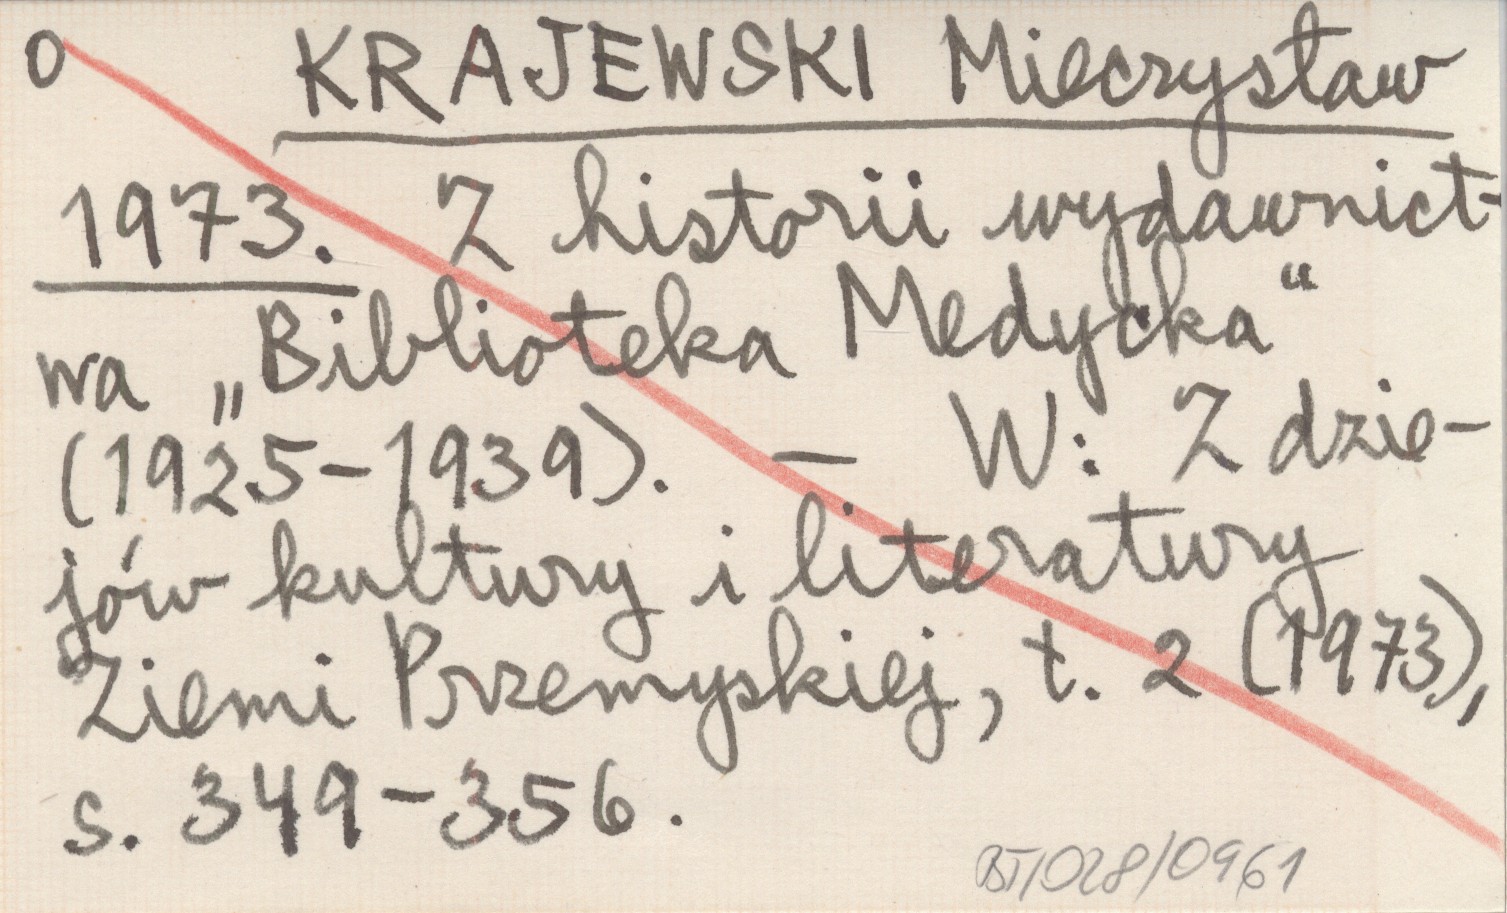 0 KRAJEWSKI Mieczysław
1973. Z historii wydawnict-
wa „Biblioteka Medycka“
(1925-1939). — W: Z dzie-
jów kultury i literatury
Ziemi Przemyskiej, t. 2 (1973),
s. 349-356.
BT/028/0961